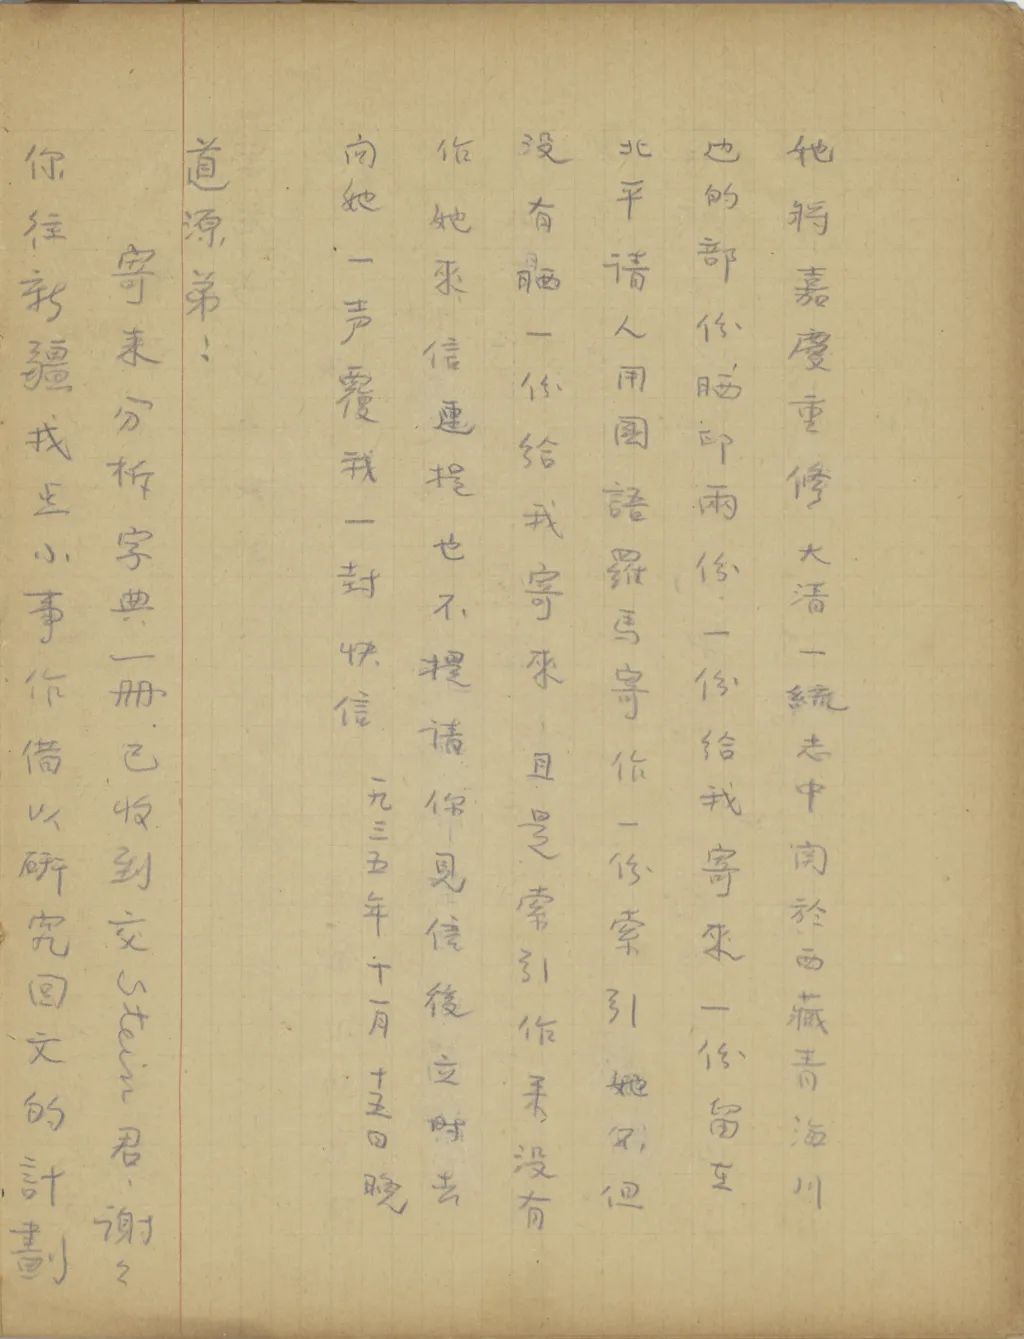 她將嘉慶重修大清一統志中関於西藏青海川
边的部份晒印兩份.一份给我寄來一份留在
北平請人用國語羅馬寄作一份索引她不但
没有晒一份给我寄來,且是索引作来没有
作她來信連提也不提請你見信後立時去
向她一声覆我一封快信 一九三五年十一月十五日晚
道源弟:
寄来分析字典一冊.已收到交Stein君.谢々
你往新疆找点小事作借以研究回文的計劃